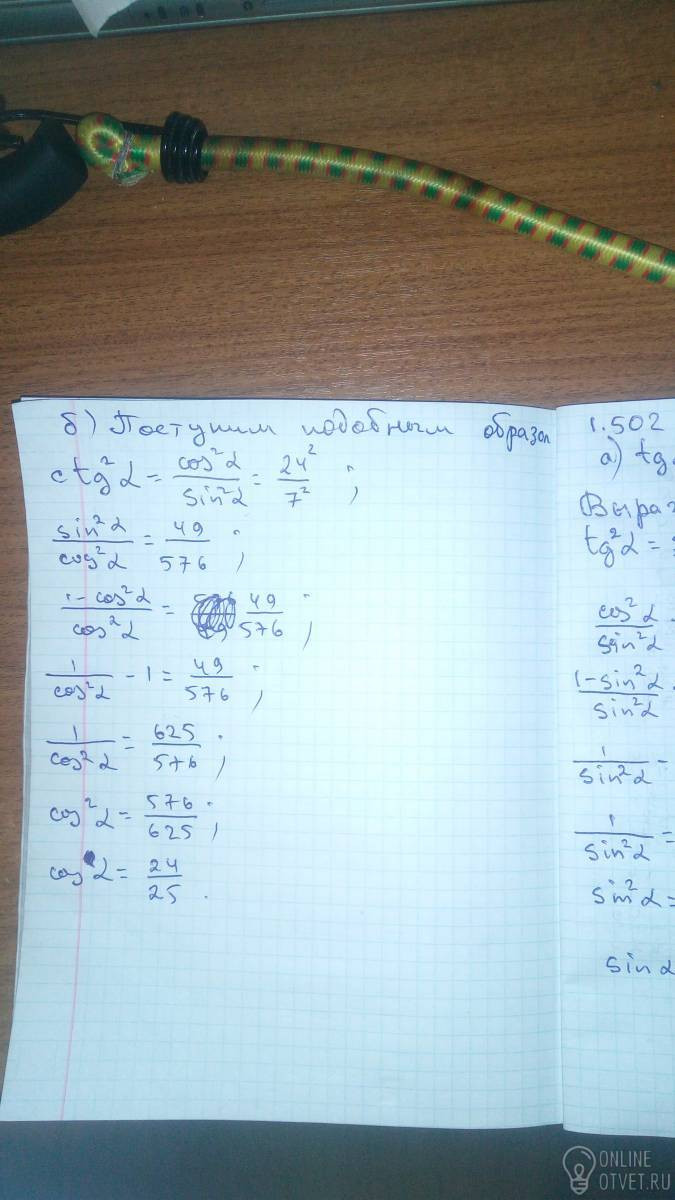 б) Поступим подобным образом
ctg²α = cos²α/sin²α = 24²/7² ;
sin²α/cos²α = 49/576 ;
1-cos²α/cos²α = 49/576 ;
1/cos²α - 1 = 49/576 ;
1/cos²α = 625/576 ;
cos²α = 576/625 ;
cos α = 24/25 .
1.502
а) tg
Выраз
tg²α =
cos²α/sin²α
1-sin²α/sin²α
1/sin²α -
1/sin²α =
sin²α =
sin α
ONLINE
OTVET.RU